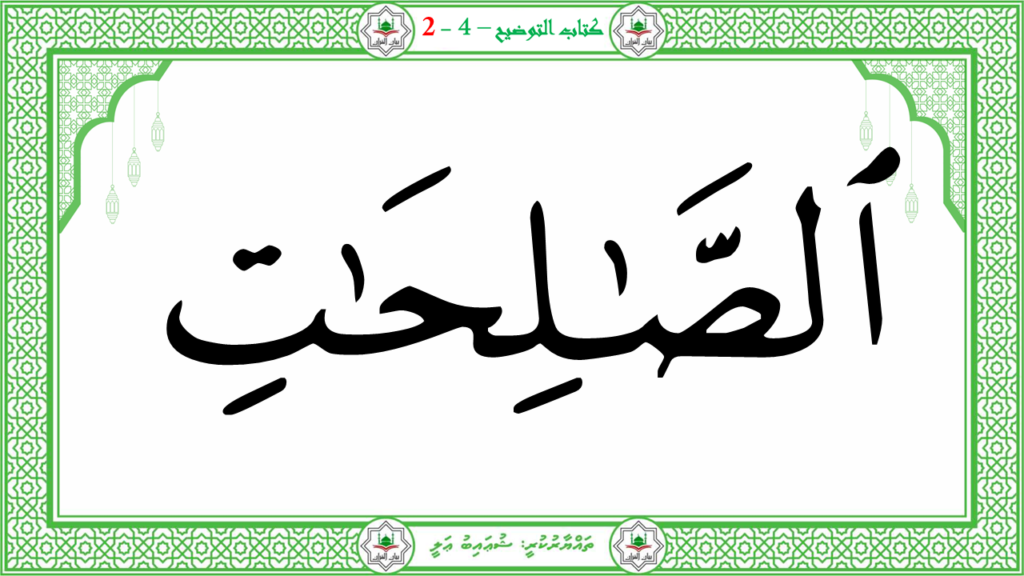 كتاب التوضيح – 4 - 2
ٱلصَّـٰلِحَـٰتِ
ތައްޔާރުކުރީ: ޝުޢައިބު ޢަލީ